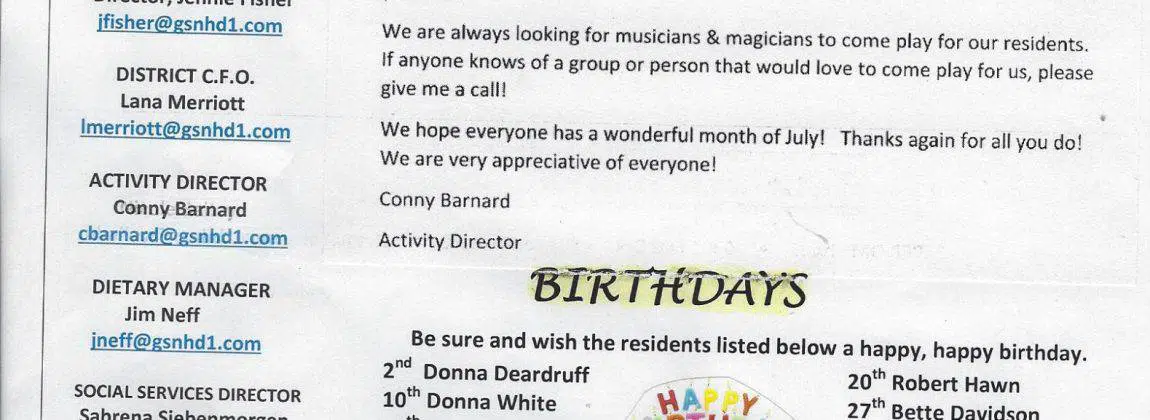 Director, Jennie Fisher
jfisher@gsnhd1.com
DISTRICT C.F.O.
Lana Merriott
lmerriott@gsnhd1.com
ACTIVITY DIRECTOR
Conny Barnard
cbarnard@gsnhd1.com
DIETARY MANAGER
Jim Neff
jneff@gsnhd1.com
SOCIAL SERVICES DIRECTOR
Sabrena Siebenmorgen
We are always looking for musicians & magicians to come play for our residents.
If anyone knows of a group or person that would love to come play for us, please
give me a call!
We hope everyone has a wonderful month of July! Thanks again for all you do!
We are very appreciative of everyone!
Conny Barnard
Activity Director
BIRTHDAYS
Be sure and wish the residents listed below a happy, happy birthday.
2nd Donna Deardruff
10th Donna White
HAPPY
20th Robert Hawn
27th Bette Davidson